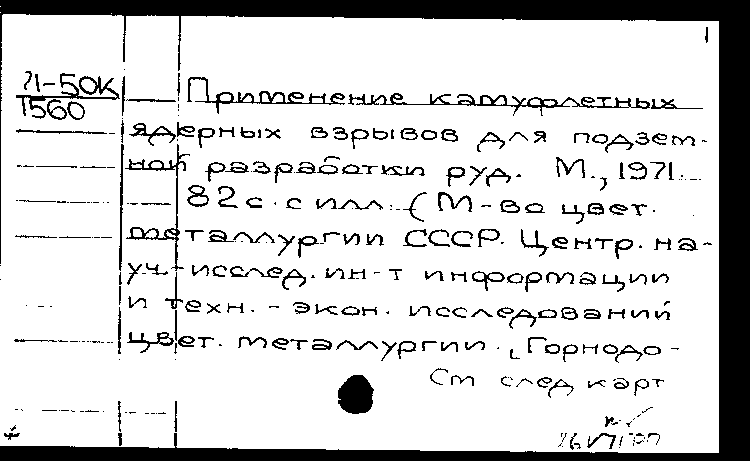 1
71-50К
1560
Применение камуфлетных
ядерных взрывов для подзем-
ной разработки руд. М., 1971.
82 с. с илл. (М-во цвет.
металлургии СССР. Центр. на-
уч.-исслед. ин-т информации
и техн. - экон. исследований
цвет. металлургии. Горнодо-
См след карт